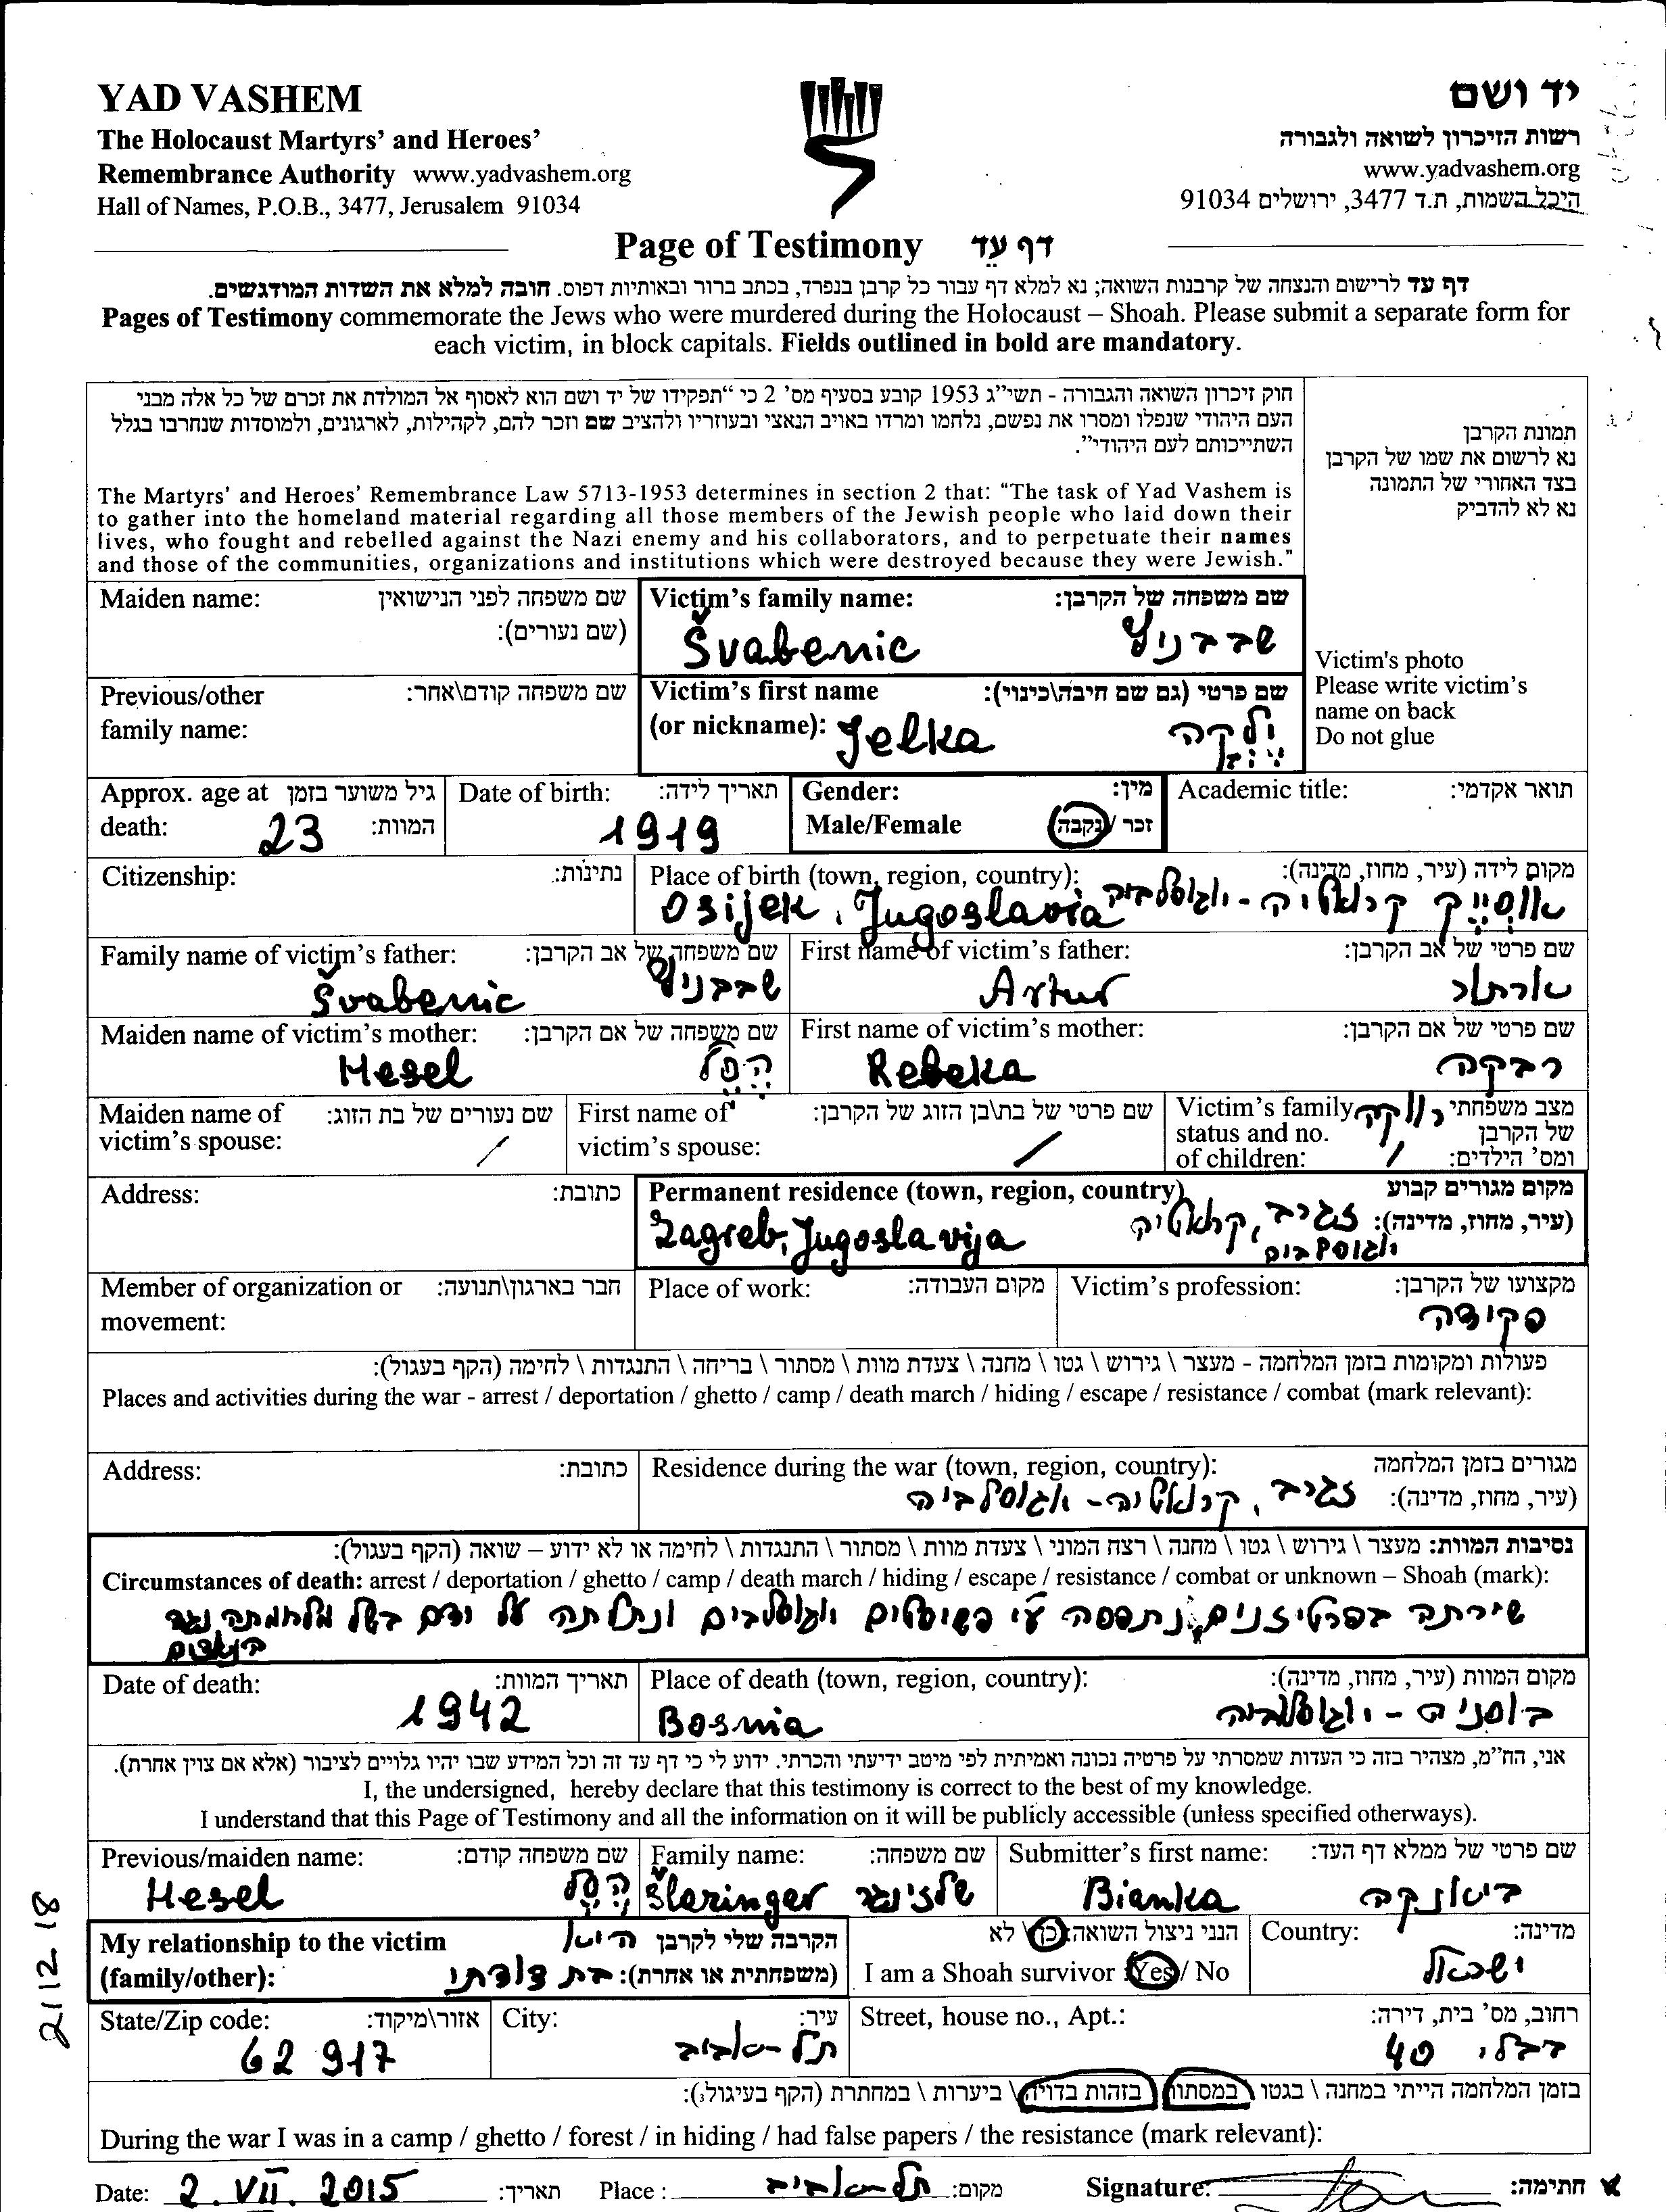 YAD VASHEM
The Holocaust Martyrs' and Heroes'
Remembrance Authority www.yadvashem.org
Hall of Names, P.O.B., 3477, Jerusalem 91034
יד ושם
רשות הזיכרון לשואה ולגבורה
www.yadvashem.org
היכל השמות, ת.ד 3477, ירושלים 91034
Page of Testimony דף עֵד
דף עד לרישום והנצחה של קרבנות השואה; נא למלא דף עבור כל קרבן בנפרד, בכתב ברור ובאותיות דפוס. חובה למלא את השדות המודגשים.
Pages of Testimony commemorate the Jews who were murdered during the Holocaust – Shoah. Please submit a separate form for
each victim, in block capitals. Fields outlined in bold are mandatory.
חוק זיכרון השואה והגבורה - תשי"ג 1953 קובע בסעיף מס' 2 כי "תפקידו של יד ושם הוא לאסוף אל המולדת את זכרם של כל אלה מבני
העם היהודי שנפלו ומסרו את נפשם, נלחמו ומרדו באויב הנאצי ובעוזריו ולהציב שם וזכר להם, לקהילות, לארגונים, ולמוסדות שנחרבו בגלל
השתייכותם לעם היהודי".
The Martyrs' and Heroes' Remembrance Law 5713-1953 determines in section 2 that: "The task of Yad Vashem is
to gather into the homeland material regarding all those members of the Jewish people who laid down their
lives, who fought and rebelled against the Nazi enemy and his collaborators, and to perpetuate their names
and those of the communities, organizations and institutions which were destroyed because they were Jewish."
תמונת הקרבן
נא לרשום את שמו של הקרבן
בצד האחורי של התמונה
נא לא להדביק
Victim's photo
Please write victim's
name on back
Do not glue
Maiden name: שם משפחה לפני הנישואין
(שם נעורים):
Victim's family name: שם משפחה של הקרבן:
Švabenic שבבניץ
Previous/other שם משפחה קודם\אחר:
family name:
Victim's first name שם פרטי (גם שם חיבה\כינוי):
(or nickname): Jelka ילקה
Approx. age at גיל משוער בזמן
death: 23 המוות:
Date of birth: תאריך לידה:
1919
Gender: מין:
Male/Female זכר / נקבה
Academic title: תואר אקדמי:
Citizenship: נתינות:
Place of birth (town, region, country): מקום לידה (עיר, מחוז, מדינה):
Osijek, Jugoslavia אוסייק קרואטיה - יוגוסלביה
Family name of victim's father: שם משפחה של אב הקרבן:
Švabenic שבבניץ
First name of victim's father: שם פרטי של אב הקרבן:
Artur ארתור
Maiden name of victim's mother: שם משפחה של אם הקרבן:
Hesel הסל
First name of victim's mother: שם פרטי של אם הקרבן:
Rebeka רבקה
Maiden name of שם נעורים של בת הזוג:
victim's spouse: /
First name of שם פרטי של בת\בן הזוג של הקרבן:
victim's spouse: /
Victim's family רווקה מצב משפחתי
status and no. של הקרבן
of children: / ומס' הילדים:
Address: כתובת:
Permanent residence (town, region, country) מקום מגורים קבוע
Zagreb, Jugoslavija זגרב, קרואטיה (עיר, מחוז, מדינה):
Member of organization or חבר בארגון\תנועה:
movement:
Place of work: מקום העבודה:
Victim's profession: מקצועו של הקרבן:
פקידה
פעולות ומקומות בזמן המלחמה - מעצר \ גירוש \ גטו \ מחנה \ צעדת מוות \ מסתור \ בריחה \ התנגדות \ לחימה (הקף בעגול):
Places and activities during the war - arrest / deportation / ghetto / camp / death march / hiding / escape / resistance / combat (mark relevant):
Address: כתובת:
Residence during the war (town, region, country): מגורים בזמן המלחמה
זגרב, קרואטיה - יוגוסלביה (עיר, מחוז, מדינה):
נסיבות המוות: מעצר \ גירוש \ גטו \ מחנה \ רצח המוני \ צעדת מוות \ מסתור \ התנגדות \ לחימה או לא ידוע – שואה (הקף בעגול):
Circumstances of death: arrest / deportation / ghetto / camp / death march / hiding / escape / resistance / combat or unknown – Shoah (mark):
שירתה בפרטיזנים, נתפסה ע"י פשיסטים יוגוסלבים ונתלתה על ידם בשל מלחמתה נגד
הנאצים
Date of death: תאריך המוות:
1942
Place of death (town, region, country): מקום המוות (עיר, מחוז, מדינה):
Bosnia בוסניה - יוגוסלביה
אני, הח"מ, מצהיר בזה כי העדות שמסרתי על פרטיה נכונה ואמיתית לפי מיטב ידיעתי והכרתי. ידוע לי כי דף עד זה וכל המידע שבו יהיו גלויים לציבור (אלא אם צוין אחרת).
I, the undersigned, hereby declare that this testimony is correct to the best of my knowledge.
I understand that this Page of Testimony and all the information on it will be publicly accessible (unless specified otherways).
Previous/maiden name: שם משפחה קודם:
Hesel הסל
Family name: שם משפחה:
Šlezinger שלזינגר
Submitter's first name: שם פרטי של ממלא דף העד:
Bianka ביאנקה
My relationship to the victim הקרבה שלי לקרבן היא
(family/other): (משפחתית או אחרת): בת דודתי
הנני ניצול השואה: כן \ לא
I am a Shoah survivor : Yes / No
Country: מדינה:
ישראל
State/Zip code: אזור\מיקוד:
62 917
City: עיר:
תל-אביב
Street, house no., Apt.: רחוב, מס' בית, דירה:
40
בזמן המלחמה הייתי במחנה \ בגטו \ במסתור \ בזהות בדויה \ ביערות \ במחתרת (הקף בעיגול):
During the war I was in a camp / ghetto / forest / in hiding / had false papers / the resistance (mark relevant):
Date: 2. VII. 2015 תאריך: Place : תל-אביב מקום: Signature: חתימה:
211218